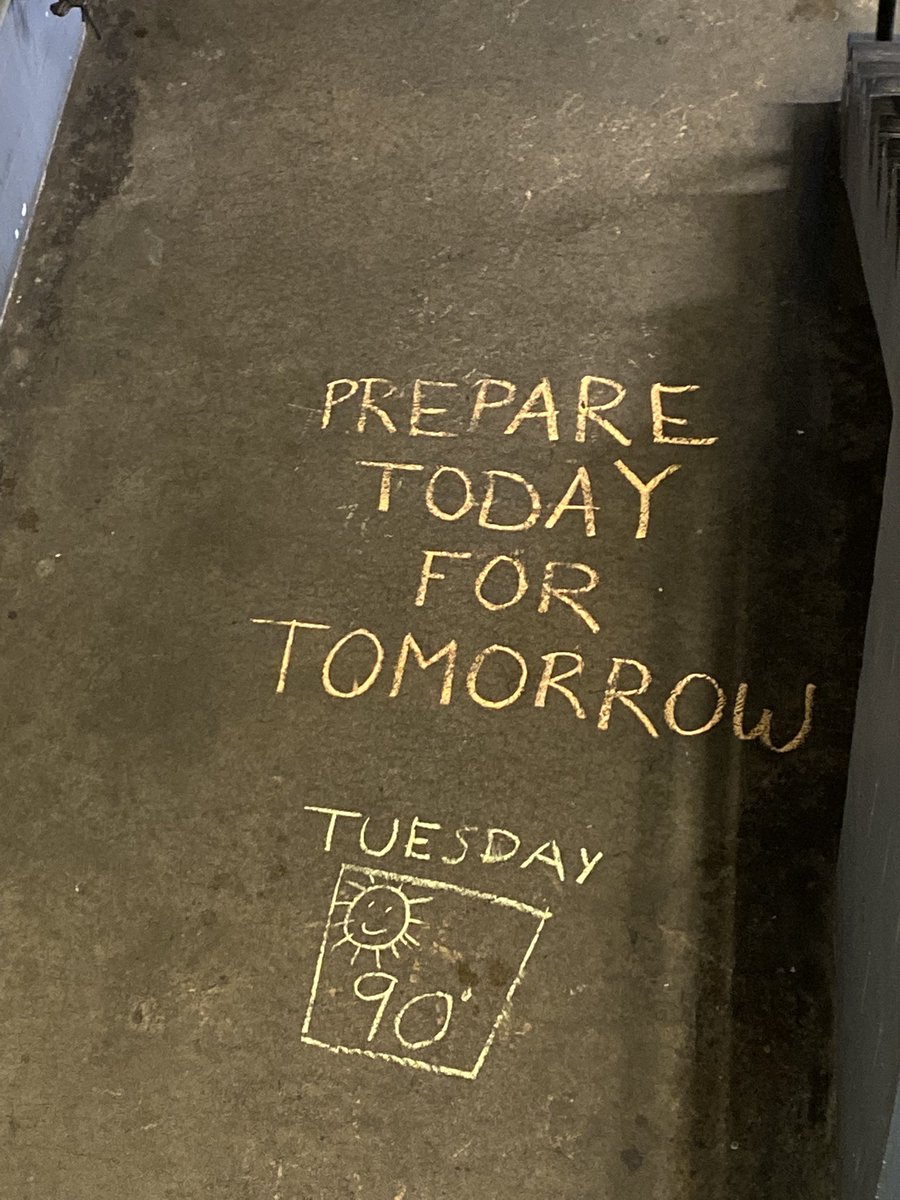 PREPARE
TODAY
FOR
TOMORROW
TUESDAY
90°